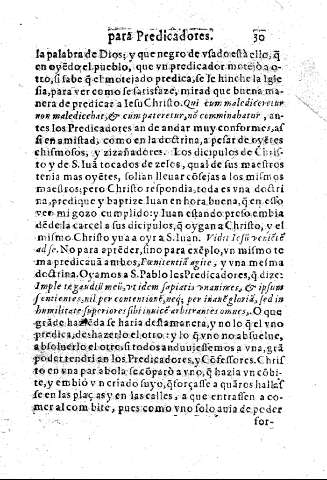 para Predicadores. 30
la palabra de Dios; y que negro de vsado està ello, q̃
en oyẽdo el pueblo, que vn predicador motejò a o-
tro, si sabe q̃ el motejado predica, se le hinche la Igle
sia, para ver como se satisfaze, mirad que buena ma-
nera de predicar a Iesu Christo. Qui cum malediceretur
non maledicebat, & cum pateretur, nō comminabatur, an-
tes los Predicadores an de andar muy conformes, as
si en amistad, como en la doctrina, a pesar de oyẽtes
chismosos, y zizañadores. Los dicipulos de Chris
to y de S. Iuã tocados de zelos, qual de sus maestros
tenia mas oyẽtes, solian lleuar cõsejas a los mismos
maestros; pero Christo respondia, toda es vna doctri
na, predique y baptize Iuan en hora buena, q̃ en esso
veo mi gozo cumplido: y Iuan estando preso embia
dẽde la carcel a sus dicipulos, q̃ oygan a Christo, y el
mismo Christo yua a oyr a S. Iuan. Vidit Iesũ veniẽtẽ
ad se. No para aptẽder, sino para exẽplo, vn mismo te
ma predicauã ambos, Pœnitentiã agite, y vna mesma
doctrina. Oyamos a S. Pablo los Predicadores, q̃ dize:
Implete gaudiũ meũ, vt idem sapiatis vnanimes, & ipsum
sentientes, nil per contentionẽ, neq; per inanẽ gloriã, sed in
humilitate superiores sibi inuicẽ arbitrantes omnes. O que
grãde haziẽda se haria desta manera, y no lo q̃ el vno
predica, deshazerlo el otro: y lo q̃ vno no absuelue,
absoluerlo el otro, si todos anduuiessemos a vna, grã
poder tendri an los Predicadores, y Cõfessores. Chris
to en vna parabola se cõparò a vno, q̃ hazia vn cõbi-
te, y embiò vn criado suyo, q̃ forçasse a quãtos hallas
se en las plaças y en las calles, a que entrassen a co-
mer al com bite, pues como vno solo auia de poder
for-